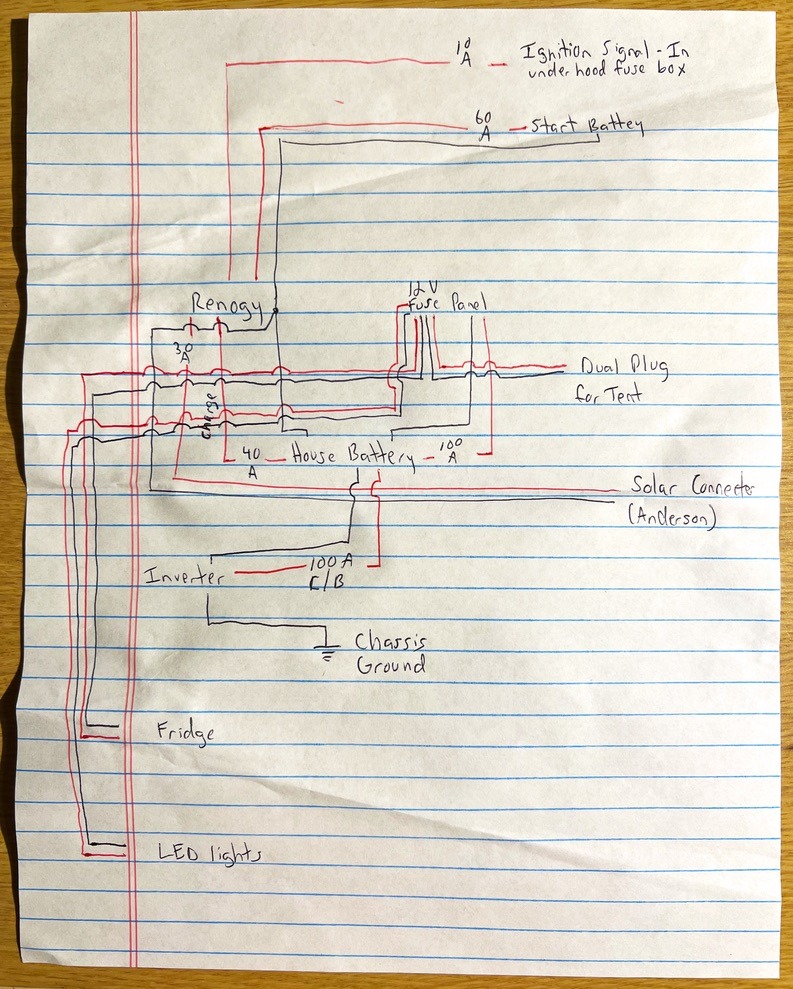 10
A
Ignition Signal - In
under hood fuse box
60
A
Start Battey
12 V
Fuse Panel
Renogy
30
A
Dual Plug
for Tent
Charge
40
A
House Battery
100
A
Solar Connecter
(Anderson)
Inverter
100 A
C/B
Chassis
Ground
Fridge
LED lights